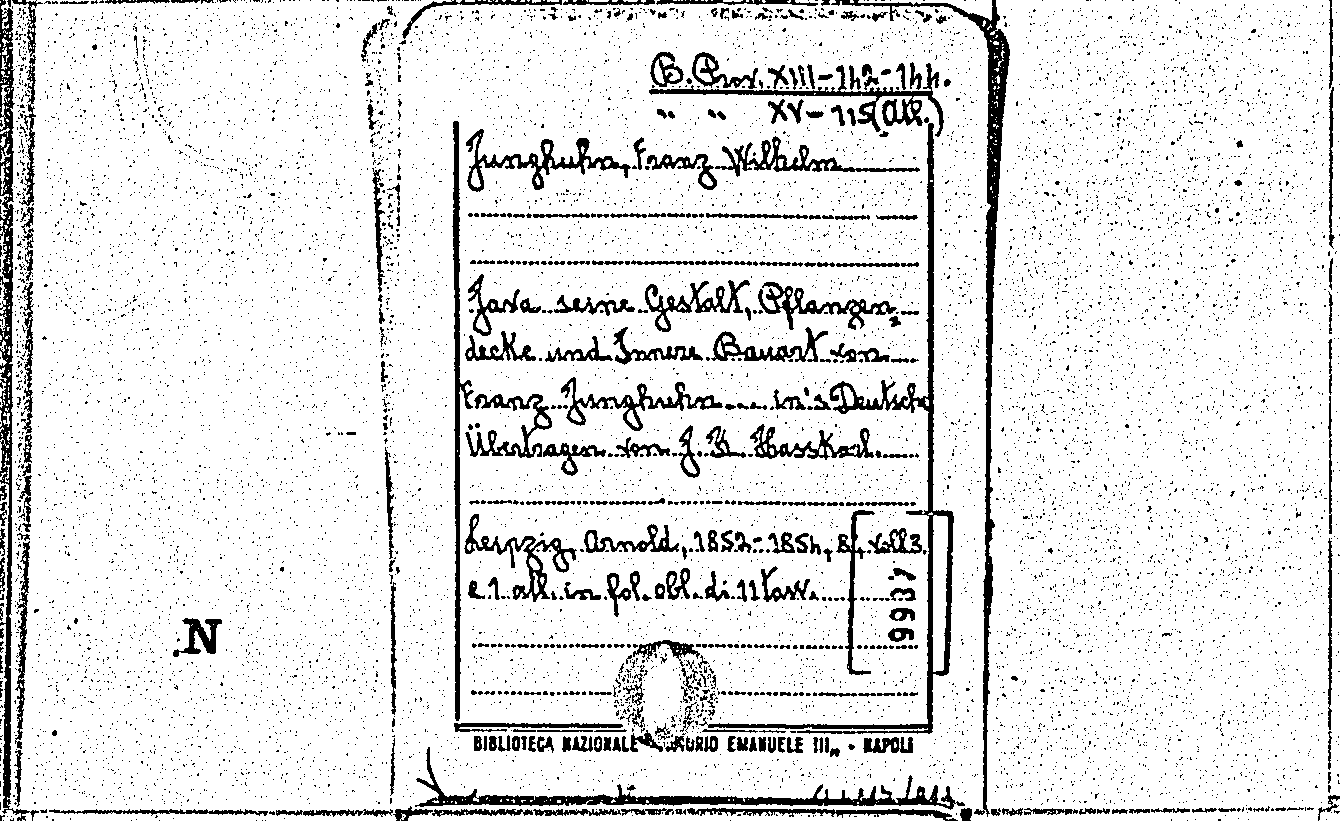 B. Prov. XIII-142-144.
" " XV-115 (Atl.)
Junghuhn, Franz Wilhelm
Java seine Gestalt, Pflanzen,
decke und Innere Bauart von
Franz Junghuhn... in's Deutsche
Übertragen von J. K. Hasskarl.
Leipzig, Arnold, 1852-1854, 8°, voll 3.
e 1 atl. in fol. obl. di 11 tav.
N
BIBLIOTECA NAZIONALE EMANUELE III„ - NAPOLI